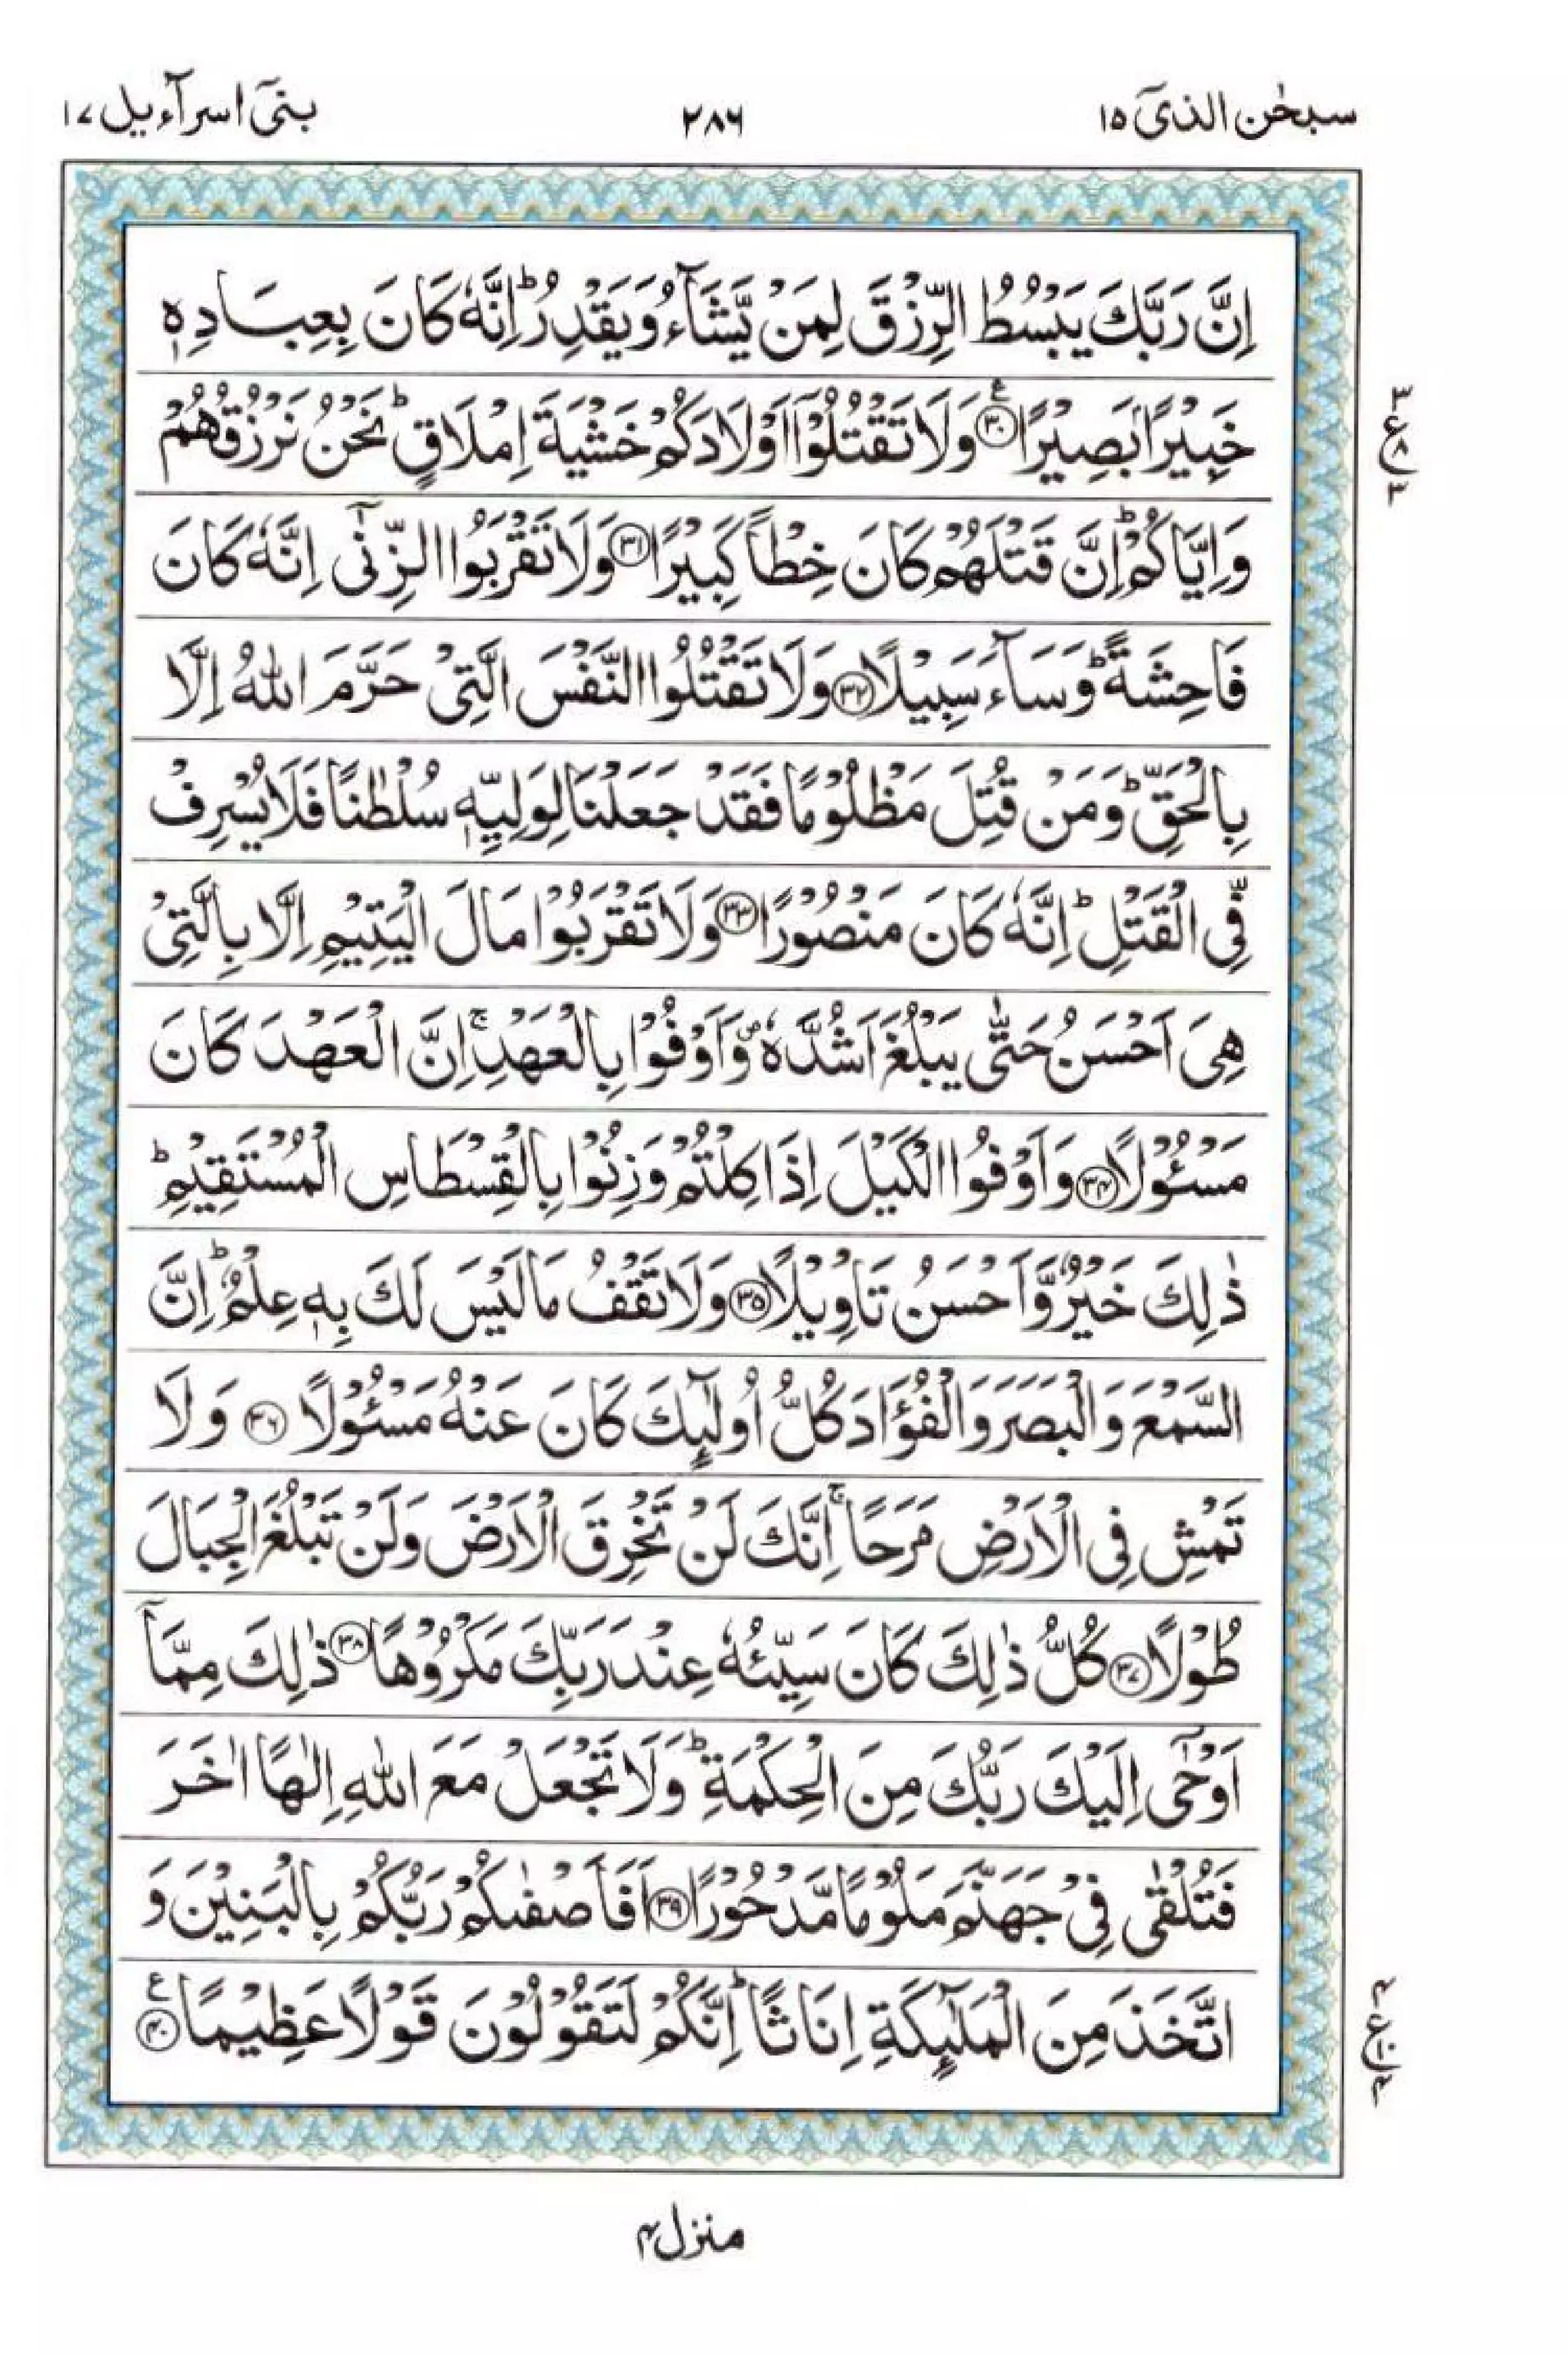 سبحٰن الذیٓ ۱۵
۲۸۶
بنیٓ اسرآءیل ۱۷
اِنَّ رَبَّكَ يَبْسُطُ الرِّزْقَ لِمَنْ يَّشَآءُ وَيَقْدِرُ ؕ اِنَّهٗ كَانَ بِعِبَادِهٖ
خَبِيْرًۢا بَصِيْرًا ﴿۳۰﴾ ع وَلَا تَقْتُلُوْۤا اَوْلَادَكُمْ خَشْيَةَ اِمْلَاقٍ ؕ نَحْنُ نَرْزُقُهُمْ
وَاِيَّاكُمْ ؕ اِنَّ قَتْلَهُمْ كَانَ خِطْاً كَبِيْرًا ﴿۳۱﴾ وَلَا تَقْرَبُوا الزِّنٰٓى اِنَّهٗ كَانَ
فَاحِشَةً ؕ وَسَآءَ سَبِيْلًا ﴿۳۲﴾ وَلَا تَقْتُلُوا النَّفْسَ الَّتِىْ حَرَّمَ اللّٰهُ اِلَّا
بِالْحَقِّ ؕ وَمَنْ قُتِلَ مَظْلُوْمًا فَقَدْ جَعَلْنَا لِوَلِيِّهٖ سُلْطٰنًا فَلَا يُسْرِفْ
فِّى الْقَتْلِ ؕ اِنَّهٗ كَانَ مَنْصُوْرًا ﴿۳۳﴾ وَلَا تَقْرَبُوْا مَالَ الْيَتِيْمِ اِلَّا بِالَّتِىْ
هِىَ اَحْسَنُ حَتّٰى يَبْلُغَ اَشُدَّهٗ ۪ وَاَوْفُوْا بِالْعَهْدِ ۚ اِنَّ الْعَهْدَ كَانَ
مَسْئُوْلًا ﴿۳۴﴾ وَاَوْفُوا الْكَيْلَ اِذَا كِلْتُمْ وَزِنُوْا بِالْقِسْطَاسِ الْمُسْتَقِيْمِ ؕ
ذٰلِكَ خَيْرٌ وَّاَحْسَنُ تَاْوِيْلًا ﴿۳۵﴾ وَلَا تَقْفُ مَا لَيْسَ لَكَ بِهٖ عِلْمٌ ؕ اِنَّ
السَّمْعَ وَالْبَصَرَ وَالْفُؤَادَ كُلُّ اُولٰٓئِكَ كَانَ عَنْهُ مَسْئُوْلًا ﴿۳۶﴾ وَلَا
تَمْشِ فِى الْاَرْضِ مَرَحًا ۚ اِنَّكَ لَنْ تَخْرِقَ الْاَرْضَ وَلَنْ تَبْلُغَ الْجِبَالَ
طُوْلًا ﴿۳۷﴾ كُلُّ ذٰلِكَ كَانَ سَيِّئُهٗ عِنْدَ رَبِّكَ مَكْرُوْهًا ﴿۳۸﴾ ذٰلِكَ مِمَّاۤ
اَوْحٰٓى اِلَيْكَ رَبُّكَ مِنَ الْحِكْمَةِ ؕ وَلَا تَجْعَلْ مَعَ اللّٰهِ اِلٰهًا اٰخَرَ
فَتُلْقٰى فِىْ جَهَنَّمَ مَلُوْمًا مَّدْحُوْرًا ﴿۳۹﴾ اَفَاَصْفٰىكُمْ رَبُّكُمْ بِالْبَنِيْنَ وَ
اتَّخَذَ مِنَ الْمَلٰٓئِكَةِ اِنَاثًا ؕ اِنَّكُمْ لَتَقُوْلُوْنَ قَوْلًا عَظِيْمًا ﴿۴۰﴾ ع
۳ ع ۸ ۳
۴ ع ۱۰ ۴
منزل ۴